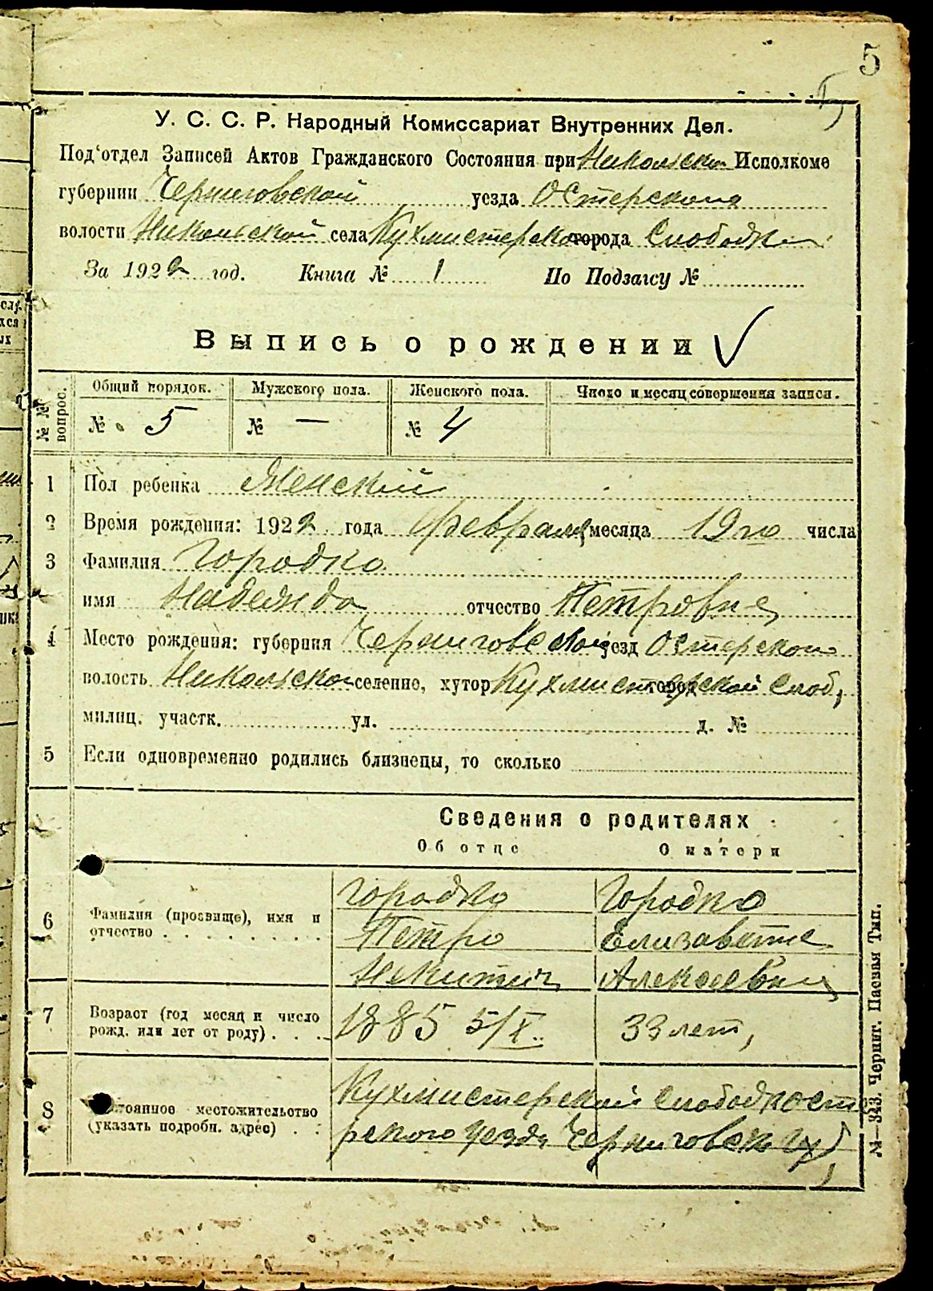 5
У. С. С. Р. Народный Комиссариат Внутренних Дел.
Под'отдел Записей Актов Гражданского Состояния при Никольском Исполкоме
губернии Черниговской уезда Остерского
волости Никольской села Кухмистерской города Слободки
За 1922 год. Книга № 1 По Подзагсу №
Выпись о рождении
№№ вопрос.
Общий порядок. Мужского пола. Женского пола. Число и месяц совершения записи.
№ 5 № — № 4
1 Пол ребенка Женский
2 Время рождения: 1922 года февраля месяца 19го числа
3 Фамилия Городко
имя Надежда отчество Петровна
4 Место рождения: губерния Черниговской уезд Остерского
волость Никольской селение, хутор город Кухмистерской Слоб,
милиц. участк. ул. д. №
5 Если одновременно родились близнецы, то сколько
Сведения о родителях
Об отце О матери
6 Фамилия (прозвище), имя и
отчество
Городко Городко
Петро Елизавета
Никитич Алексеевна
7 Возраст (год месяц и число
рожд. или лет от роду)
1885 5/X. 33 лет,
8 стоянное местожительство
(указать подробн. адрес)
Кухмистерской Слободк Осте
рского уезда Черниговск г,
№—343. Черниг. Паевая Тип.